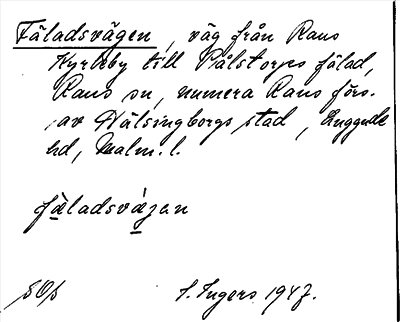 Fäladsvägen, väg från Raus
Kyrkby till Pålstorps fälad,
Raus sn, numera Raus förs.
av Hälsingborgs stad, Luggude
hd, Malm. l.
fäladsvägen
I. Ingers 1947.